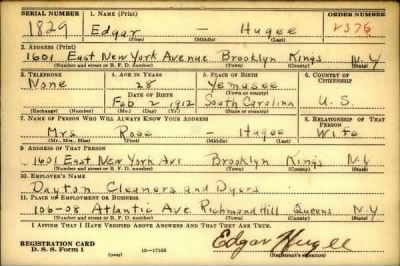 SERIAL NUMBER 1. NAME (Print) ORDER NUMBER
1829 Edgar — Hugee 2376
(First) (Middle) (Last)
2. ADDRESS (Print)
1601 East New York Avenue Brooklyn Kings N.Y
(Number and street or R. F. D. number) (Town) (County) (State)
3. TELEPHONE 4. AGE IN YEARS 5. PLACE OF BIRTH 6. COUNTRY OF CITIZENSHIP
None 28 Yemasee
DATE OF BIRTH (Town or county)
Feb 2 1912 South Carolina U.S.
(Exchange) (Number) (Mo.) (Day) (Yr.) (State or country)
7. NAME OF PERSON WHO WILL ALWAYS KNOW YOUR ADDRESS 8. RELATIONSHIP OF THAT PERSON
Mrs Rose — Hugee Wife
(Mr., Mrs., Miss) (First) (Middle) (Last)
9. ADDRESS OF THAT PERSON
1601 East New York Ave Brooklyn Kings N.Y
(Number and street or R. F. D. number) (Town) (County) (State)
10. EMPLOYER'S NAME
Dayton Cleaners and Dyers
11. PLACE OF EMPLOYMENT OR BUSINESS
106-08 Atlantic Ave Richmond Hill Queens N.Y
(Number and street or R. F. D. number) (Town) (County) (State)
I AFFIRM THAT I HAVE VERIFIED ABOVE ANSWERS AND THAT THEY ARE TRUE.
REGISTRATION CARD Edgar Hugee
D. S. S. Form 1 16—17105 (Registrant's signature)